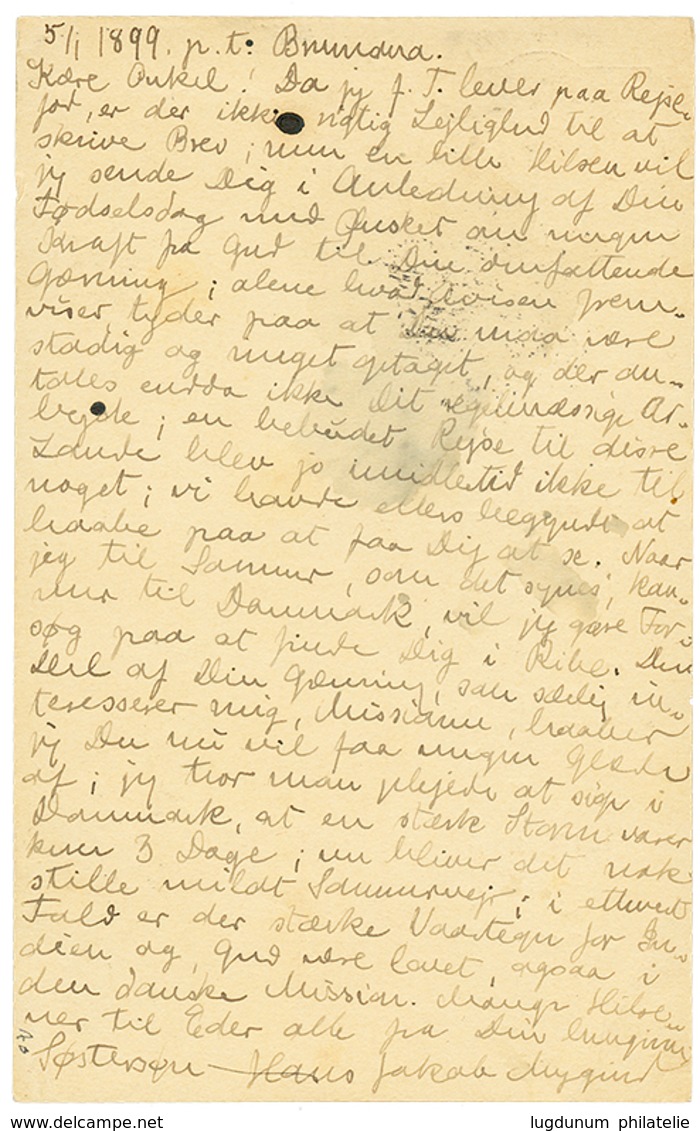 5/1 1899. p.t. Brumana.
Kære Onkel! Da jeg f. T. lever paa Rejse-
fod, er der ikke rigtig Lejlighed til at
skrive Brev; men en lille Hilsen vil
jeg sende Dig i Anledning af Din
Fødselsdag med Ønsket om megen
Kraft fra Gud til Din omfattende
Gærning; alene hvad Avisen frem-
viser, tyder paa at Du maa være
stadig og meget optaget, og der om-
tales endda ikke Dit regelmæssige Ar-
bejde; en bebudet Rejse til disse
Lande blev jo imidlertid ikke til
noget; vi havde ellers begyndt at
haabe paa at faa Dig at se. Naar
jeg til Sommer, som det synes, kom-
mer til Danmark, vil jeg gøre For-
søg paa at finde Dig i Ribe. Den
Del af Din Gærning, som særlig in-
teresserer mig, Missionen, haaber
jeg Du nu vil faa megen Glæde
af; jeg tror man plejede at sige i
Danmark, at en stærk Storm varer
kun 3 Dage; nu bliver det nok
stille mildt Sommervejr; i ethvert
Fald er der stærke Vaartegn for In-
dien og, Gud være lovet, ogsaa i
den danske Mission. Mange Hilse-
ner til Eder alle fra Din hengivne
Søstersøn Hans Jakob Mygind
delcampe.net
lugdunum philatelie